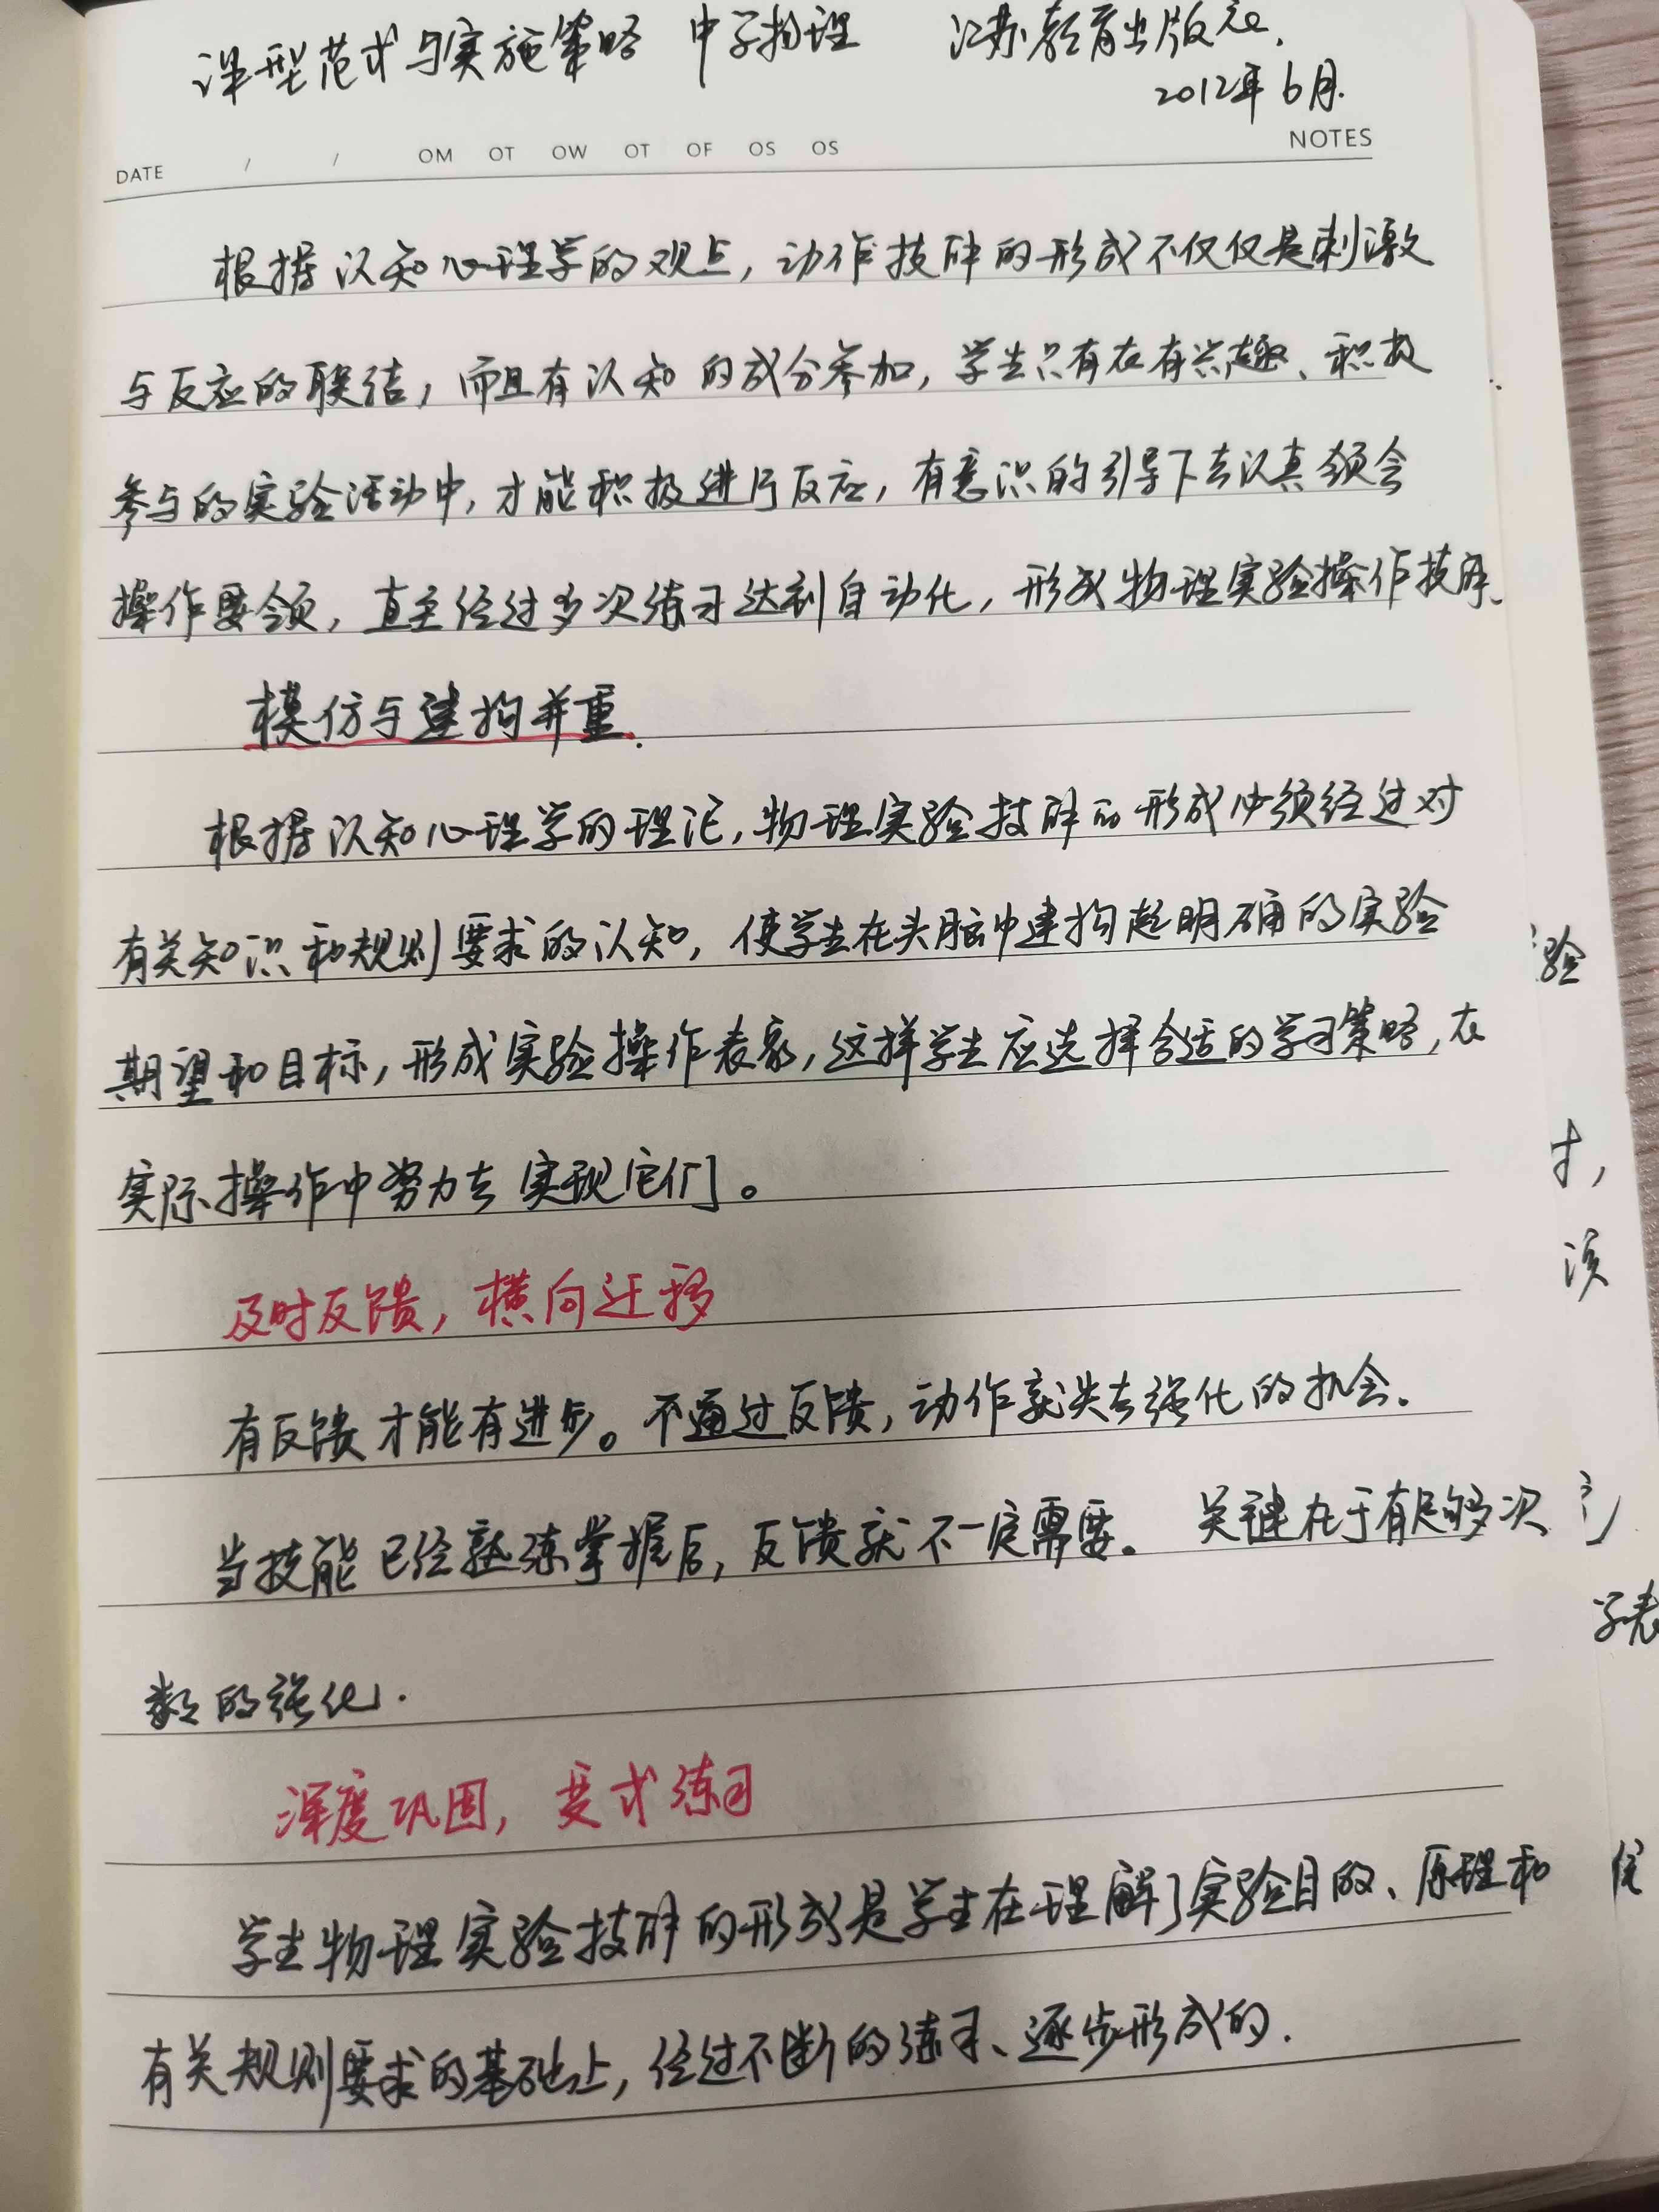 课型范式与实施策略 中学物理 江苏教育出版社,
2012年6月.
DATE / / OM OT OW OT OF OS OS NOTES
根据认知心理学的观点,动作技能的形成不仅仅是刺激
与反应的联结,而且有认知的成分参加,学生只有在有兴趣、积极
参与的实验活动中,才能积极进行反应,有意识的引导下去认真领会
操作要领,直至经过多次练习达到自动化,形成物理实验操作技能.
模仿与建构并重.
根据认知心理学的理论,物理实验技能的形成必须经过对
有关知识和规则要求的认知,使学生在头脑中建构起明确的实验
期望和目标,形成实验操作表象,这样学生应选择合适的学习策略,在
实际操作中努力去实现它们。
及时反馈,横向迁移
有反馈才能有进步。不通过反馈,动作就失去强化的机会.
当技能已经熟练掌握后,反馈就不一定需要。关键在于有足够多次
数的强化.
深度巩固,变式练习
学生物理实验技能的形成是学生在理解了实验目的、原理和
有关规则要求的基础上,经过不断的练习、逐步形成的.
验
才,
学表